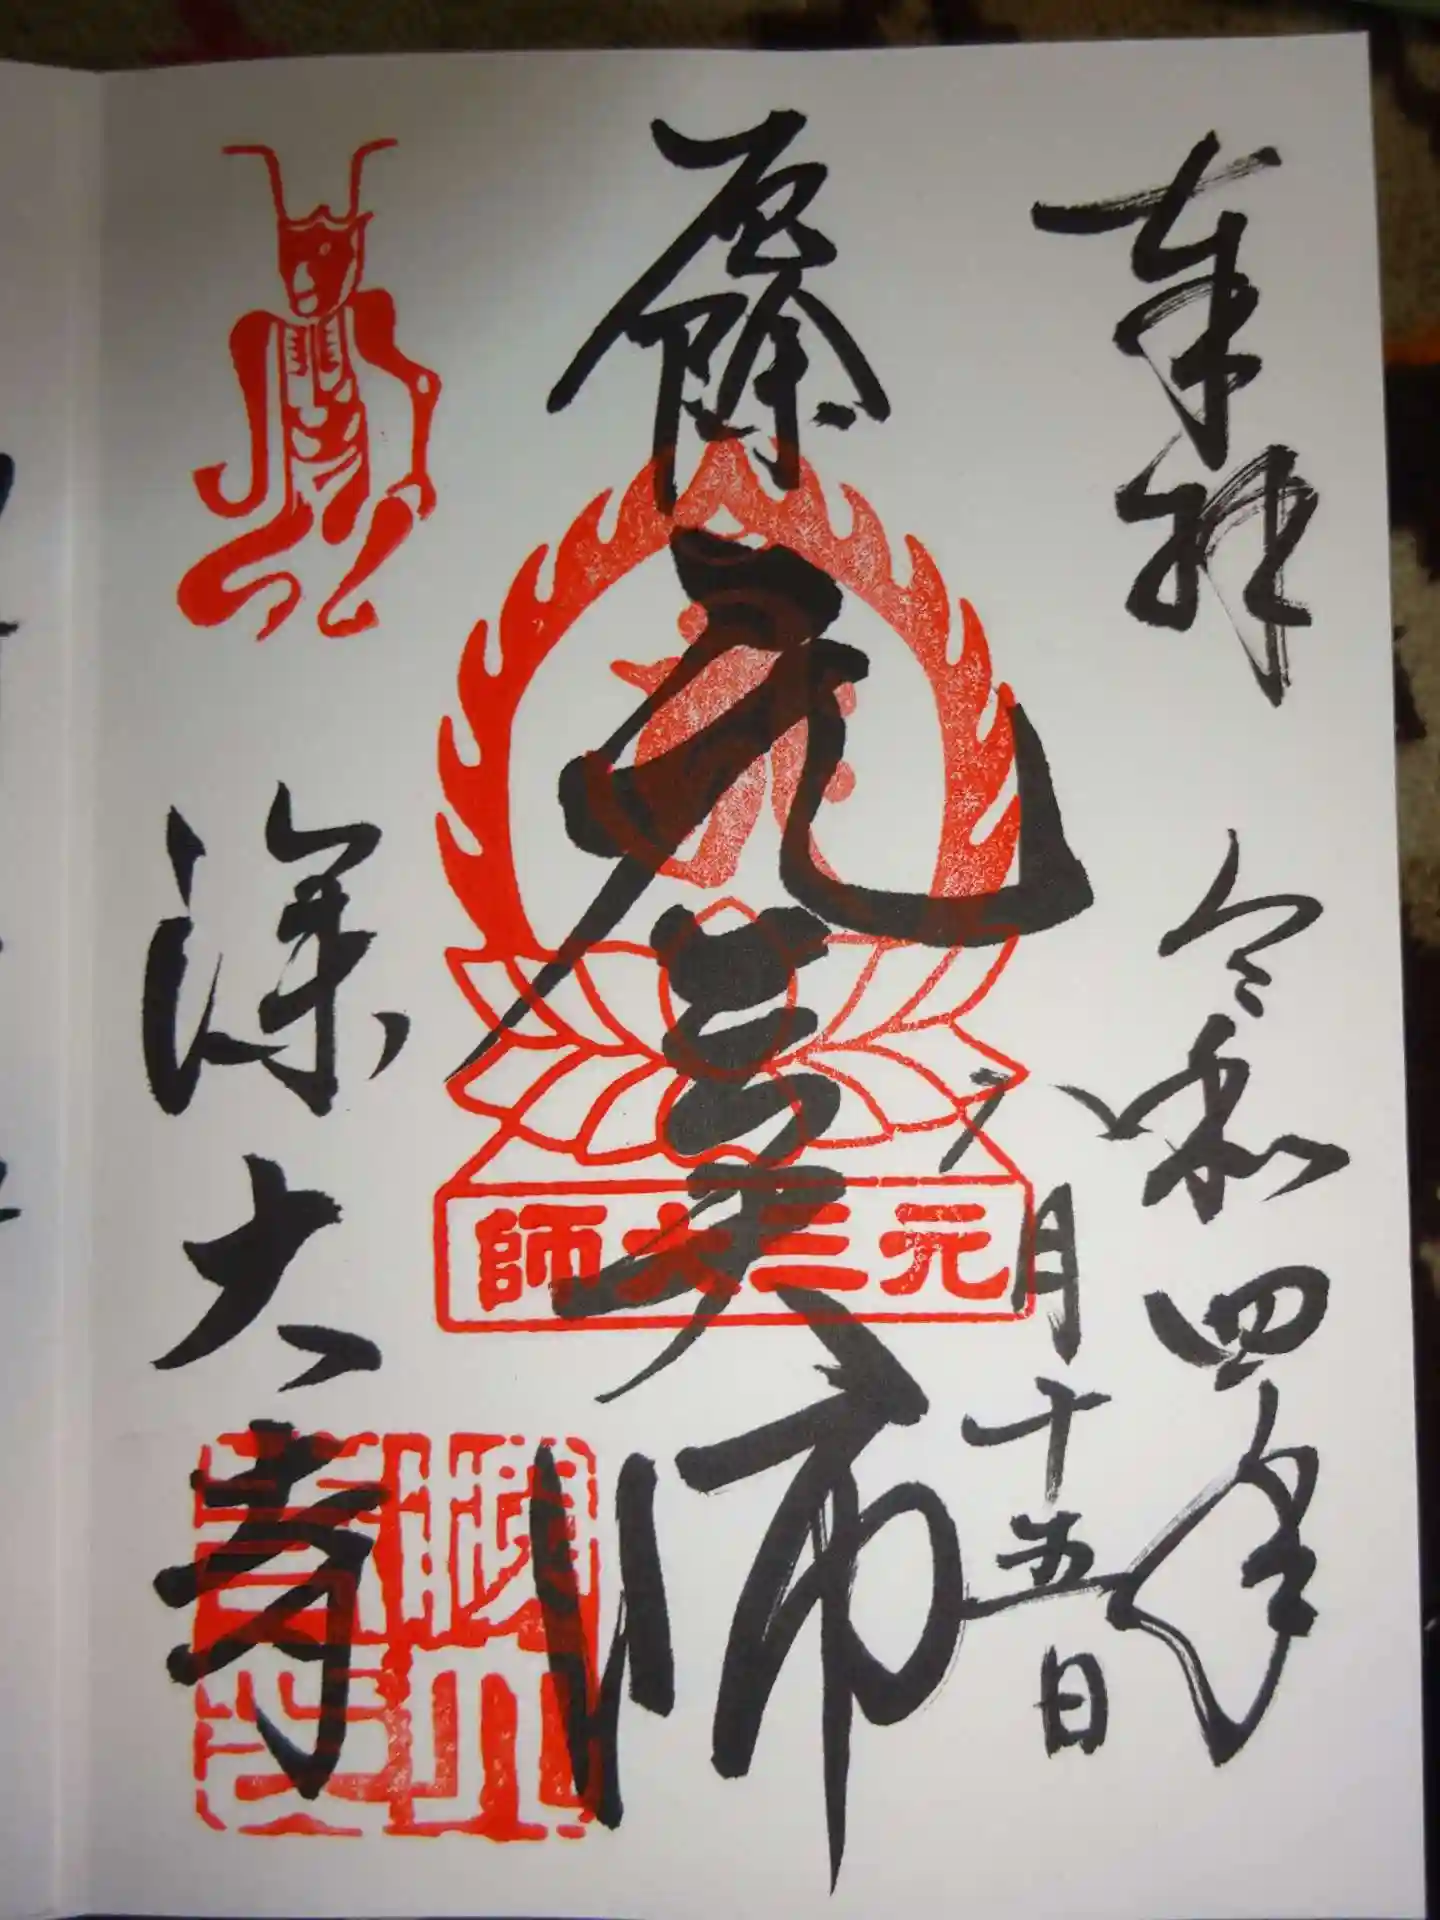 奉拝
令和四年
八月十五日
元三大師
元三大師
深大寺